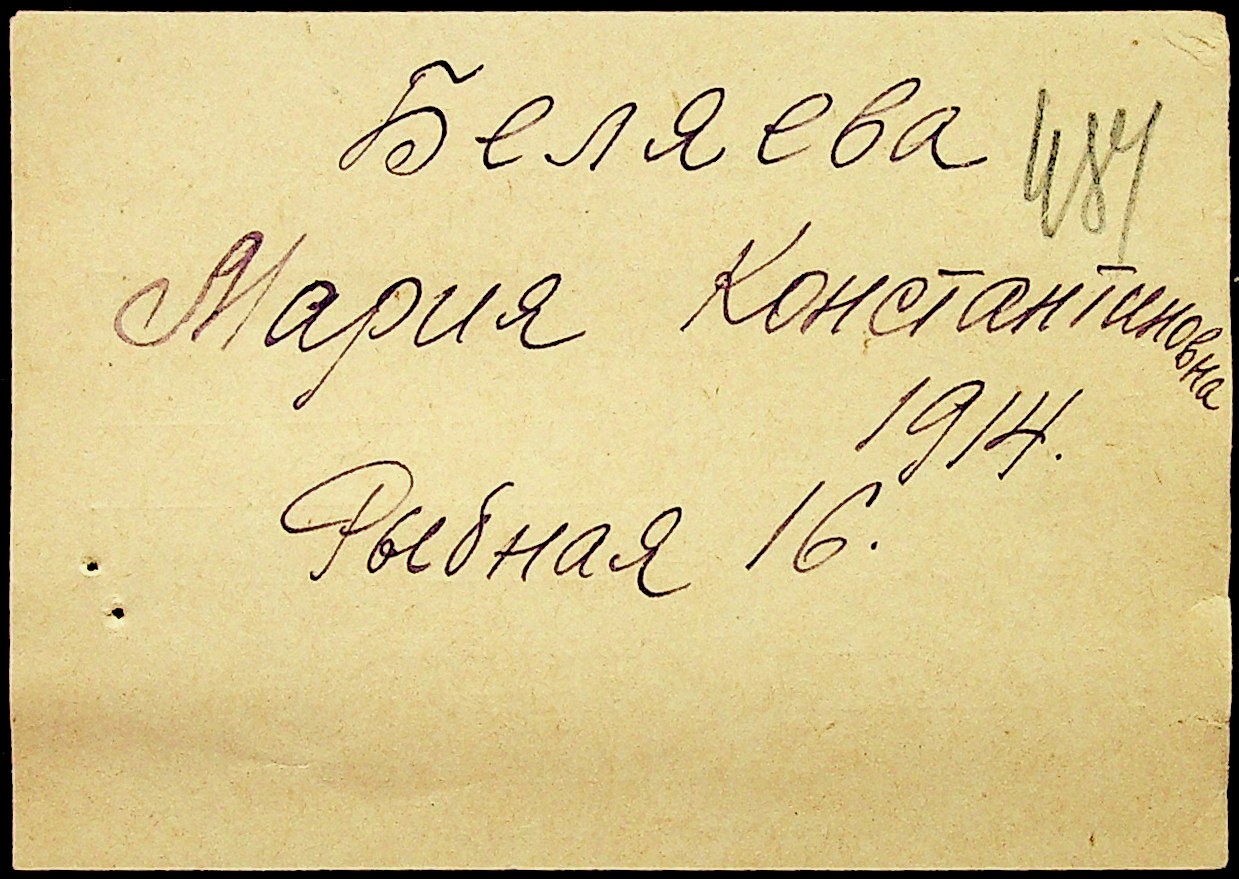 Беляева
Мария Константиновна
1914.
Рыбная 16.